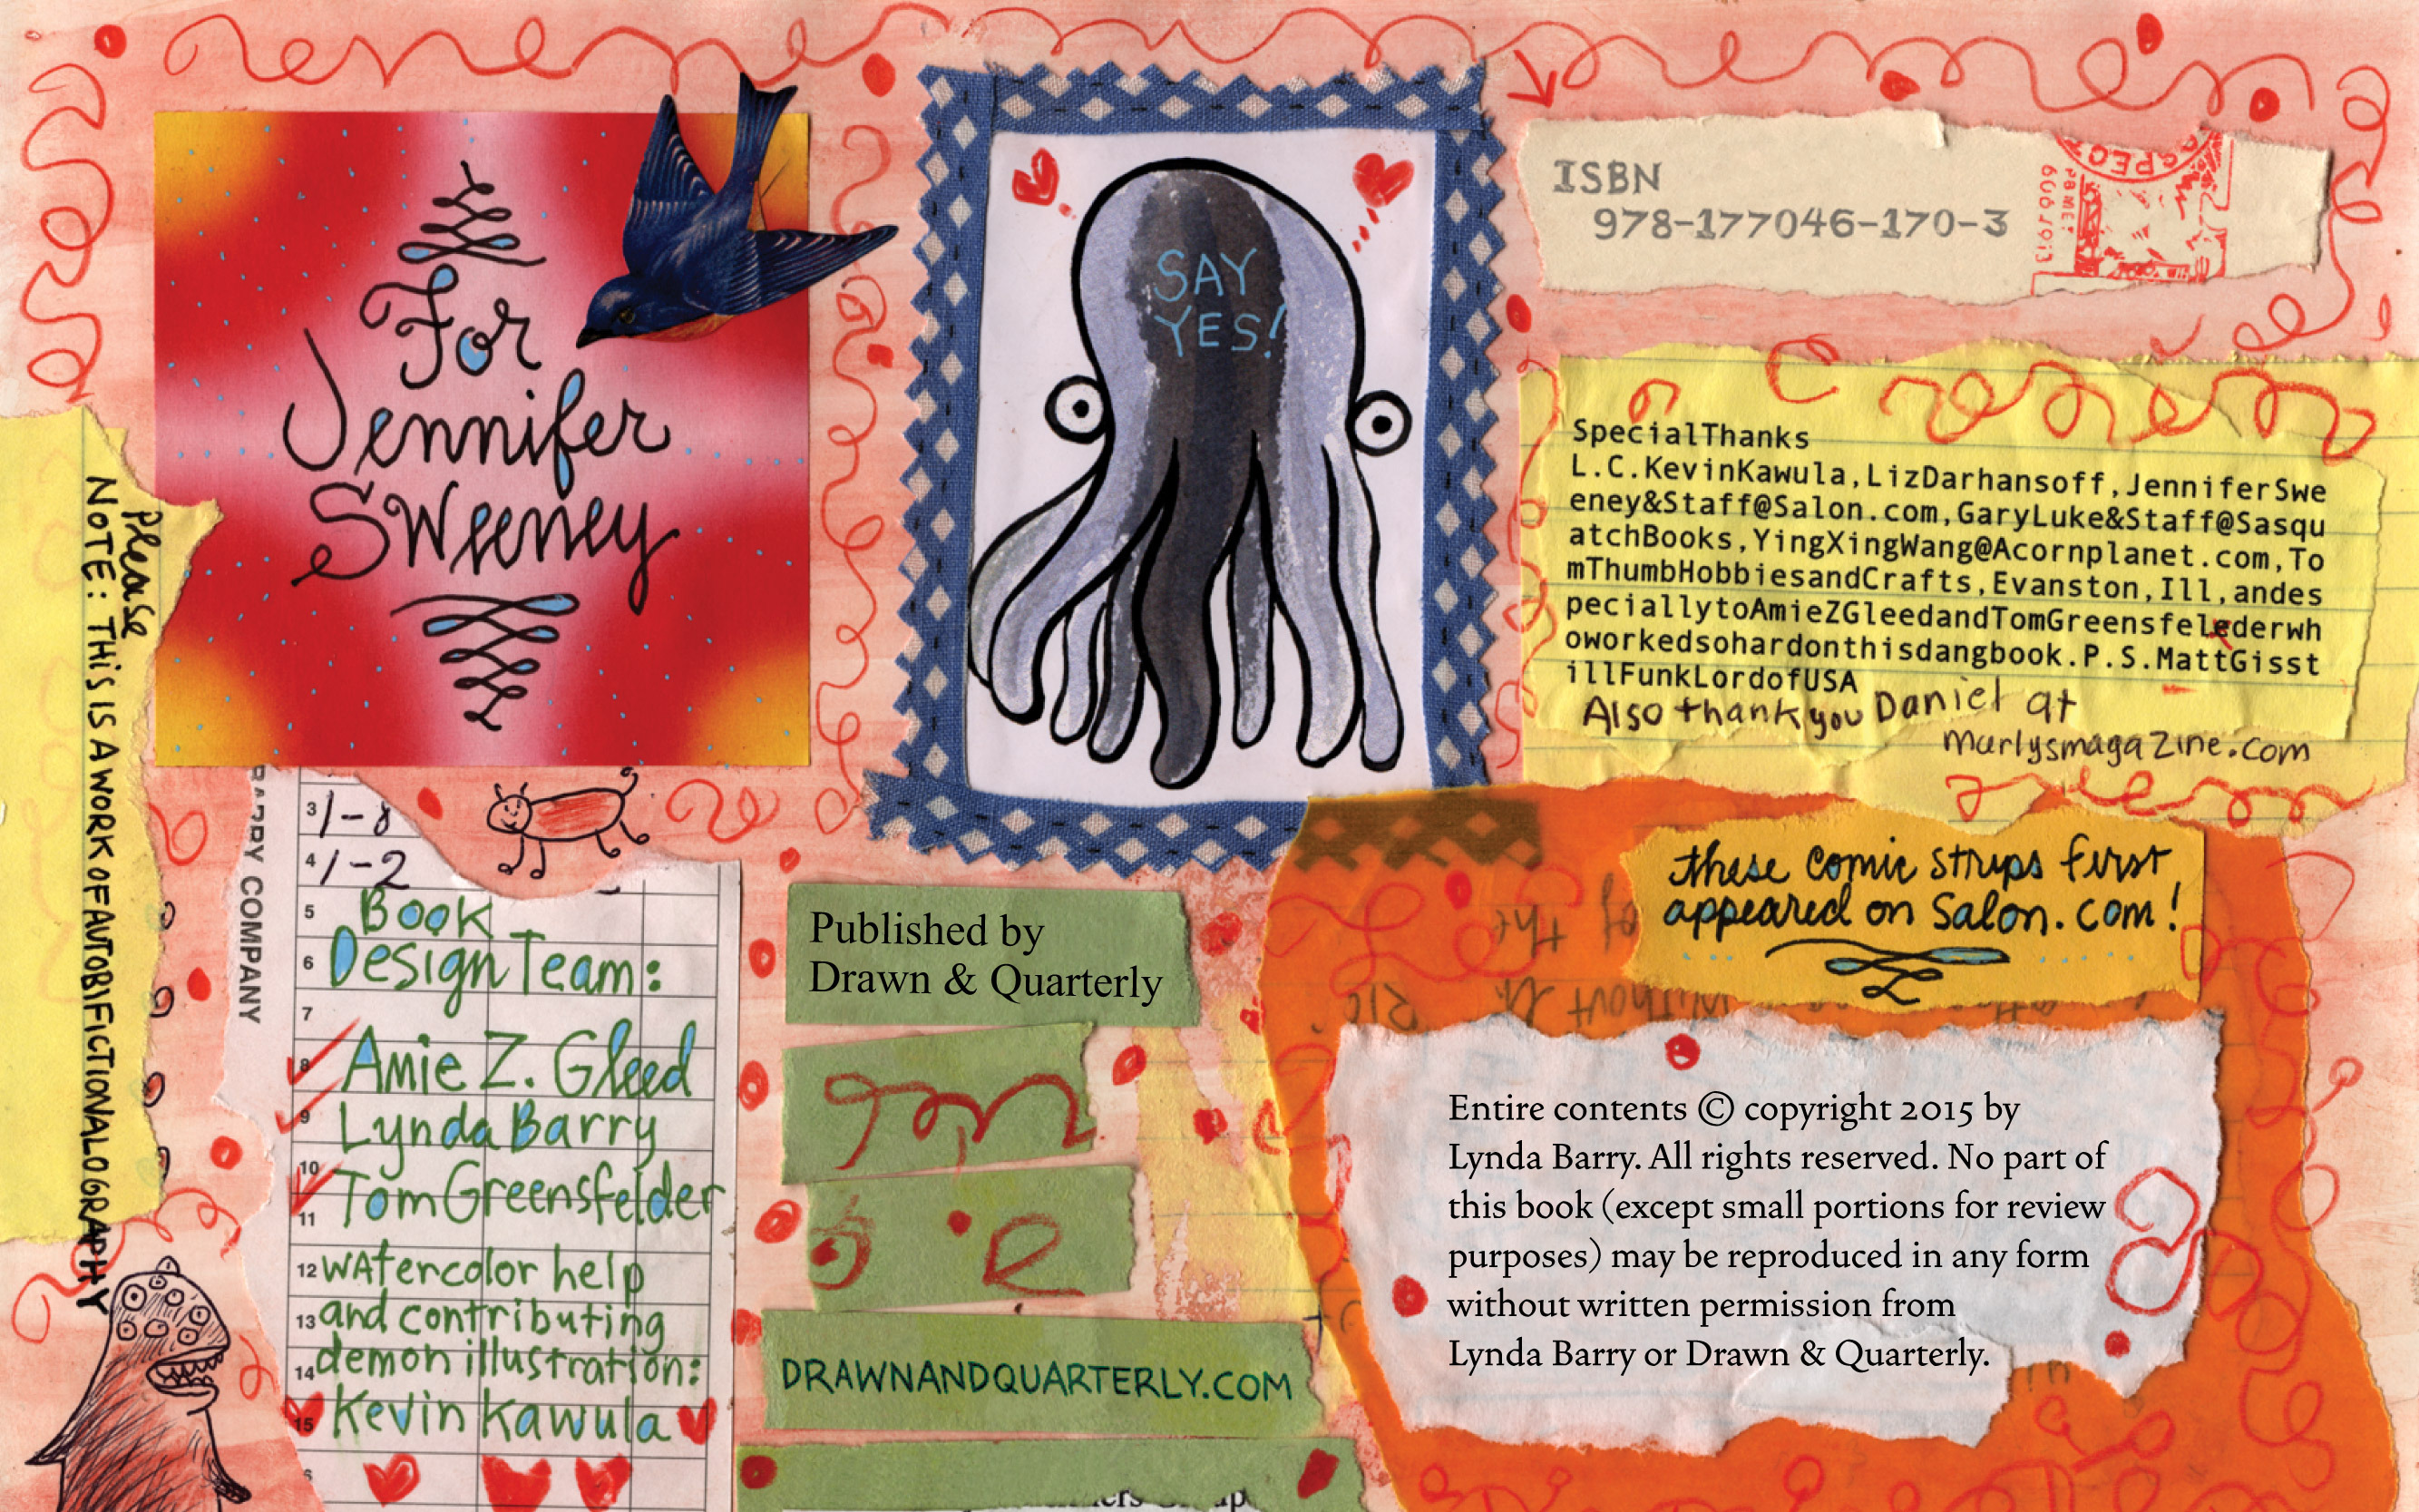 For
Jennifer
Sweeney
SAY
YES!
ISBN
978-177046-170-3
SpecialThanks
L.C.KevinKawula,LizDarhansoff,JenniferSwe
eney&Staff@Salon.com,GaryLuke&Staff@Sasqu
atchBooks,YingXingWang@Acornplanet.com,To
mThumbHobbiesandCrafts,Evanston,Ill,andes
peciallytoAmieZGleedandTomGreensfelederwh
oworkedsohardonthisdangbook.P.S.MattGisst
illFunkLordofUSA
Also thank you Daniel at
marlysmagazine.com
please
NOTE: THIS IS A WORK OF AUTOBIFICTIONALOGRAPHY
COMPANY
3 1-8
4 1-2
5 Book
6 Design Team:
7
8 Amie Z. Gleed
9 Lynda Barry
10 Tom Greensfelder
11
12 watercolor help
13 and contributing
14 demon illustration:
15 Kevin Kawula
Published by
Drawn & Quarterly
DRAWNANDQUARTERLY.COM
these comic strips first
appeared on Salon.com!
Entire contents © copyright 2015 by
Lynda Barry. All rights reserved. No part of
this book (except small portions for review
purposes) may be reproduced in any form
without written permission from
Lynda Barry or Drawn & Quarterly.